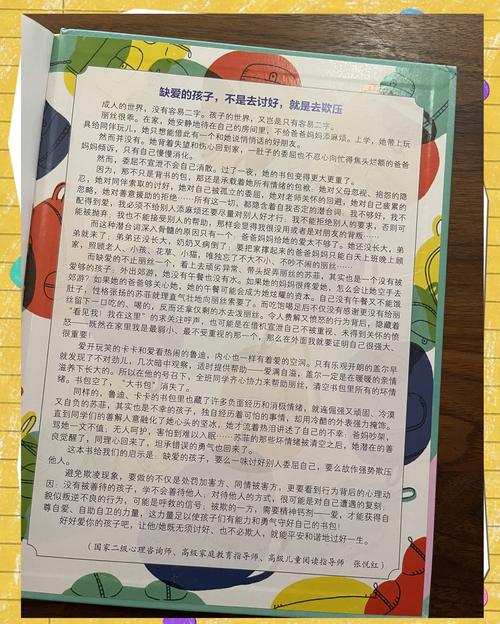 缺爱的孩子，不是去讨好，就是去欺压
成人的世界，没有容易二字。孩子的世界，又岂是只有容易二字。
丽丝很乖。在家，她安静地待在自己的房间里，不给爸爸妈妈添麻烦。上学，她带上玩
具给同伴玩儿，她只想能借此有一个和她说悄悄话的好朋友。
然而并没有。她背着失望和伤心回到家，一肚子的委屈也不忍心向忙得焦头烂额的爸爸
妈妈倾诉，只有自己慢慢消化。
然而，委屈不宣泄不会自己消散。过了一夜，她的书包变得更大更重了。
因为，那不只是背书的包，那还是承载着她所有情绪的包袱：她对父母忽视、抱怨的隐
忍，她对同伴索取的讨好，她对自己被孤立的委屈，她对老师关怀的回避，她对自己疲累的
忽略，她对善意援助的拒绝……所有这一切，都隐含着自我否定的潜台词：我不够好，我不
配得到爱，我必须不给别人添麻烦还要尽量对别人好才行；我不能拒绝别人的要求，否则可
能被抛弃；我也不能接受别人的帮助，那样会显得我很没用或者是对朋友的背叛……
而这种潜台词深入骨髓的原因只有一个：爸爸妈妈给她的爱太不够了。她还没长大，弟
弟就来了；弟弟还没长大，奶奶又病倒了；要把家撑起来的爸爸妈妈只能白天上班晚上顾
家，照顾老人、小孩、花草、小猫，唯独忘了不大不小、不吵不闹的丽丝……
而缺爱的不止丽丝一个，看上去顽劣异常、带头捉弄丽丝的苏菲，其实也是一个没有被
爱够的孩子：外出郊游，她没有午餐也没有水。如果她的妈妈很疼爱她，怎么会让她空手去
郊游？如果她的爸爸够关心她，她的午餐可能会成为她炫耀的资本。自己没有午餐又不能饿
肚子，性格张扬的苏菲就理直气壮地向丽丝索要了。而吃饱喝足后不仅没有感谢更没有给丽
丝留下一口吃的、喝的，反而还拿仅剩的水去泼丽丝。令人费解又愤怒的行为背后，隐藏着
“看见我！我在这里”的求关注呼声，也可能是在借机宣泄自己不被重视、未得到关怀的愤
怒——既然在家里我是最弱小、最不受重视的那一个，那么在外面我就要证明自己很强大、
很重要！
爱开玩笑的卡卡和爱看热闹的鲁迪，内心也一样有着爱的空洞。只有乐观开朗的盖尔早
就发现了不对劲儿，几次暗中观察，适时提供帮助——爱满自溢，盖尔一定是在暖暖的亲情
滋养下长大的。所以在他的号召下，全班同学齐心协力来帮助丽丝，清空书包里所有的坏情
绪。书包空了，“大书包”消失了。
同样的，鲁迪、卡卡的书包里也藏了许多负面经历和消极情绪，就连倔强又顽固、冷漠
又自负的苏菲，其实也是不幸的孩子，独自经历着可怕的事情，却用冷酷的外表强力掩饰。
直到同学们的善解人意融化了她心头的坚冰，她才流着热泪讲述了自己的不幸：爸妈吵架，
骂她一文不值；无人呵护，害怕到难以入眠……苏菲的那些坏情绪被清空之后，她潜在的善
良觉醒了，同理心来了，坦承错误的勇气也回来了。
这本书给我们的启示是：缺爱的孩子，要么一味讨好别人委屈自己，要么故作强势欺压
他人。
避免欺凌现象，要做的不仅是处罚加害方、同情被害方，更要看到行为背后的心理动
因：没有被善待的孩子，学不会善待他人；对待他人的方式，很可能是对自己遭遇的复刻；
貌似叛逆不良的行为，可能是呼救的信号；被欺的一方，需要精神钙剂——爱，才能获得自
尊自爱、自助自卫的力量，这力量足以使孩子们有能力和勇气守好自己的书包！
好好爱你的孩子吧，让他/她既无须讨好、也不必欺人，就能平安和谐地过好一生。
（国家二级心理咨询师、高级家庭教育指导师、高级儿童阅读指导师　张悦红）